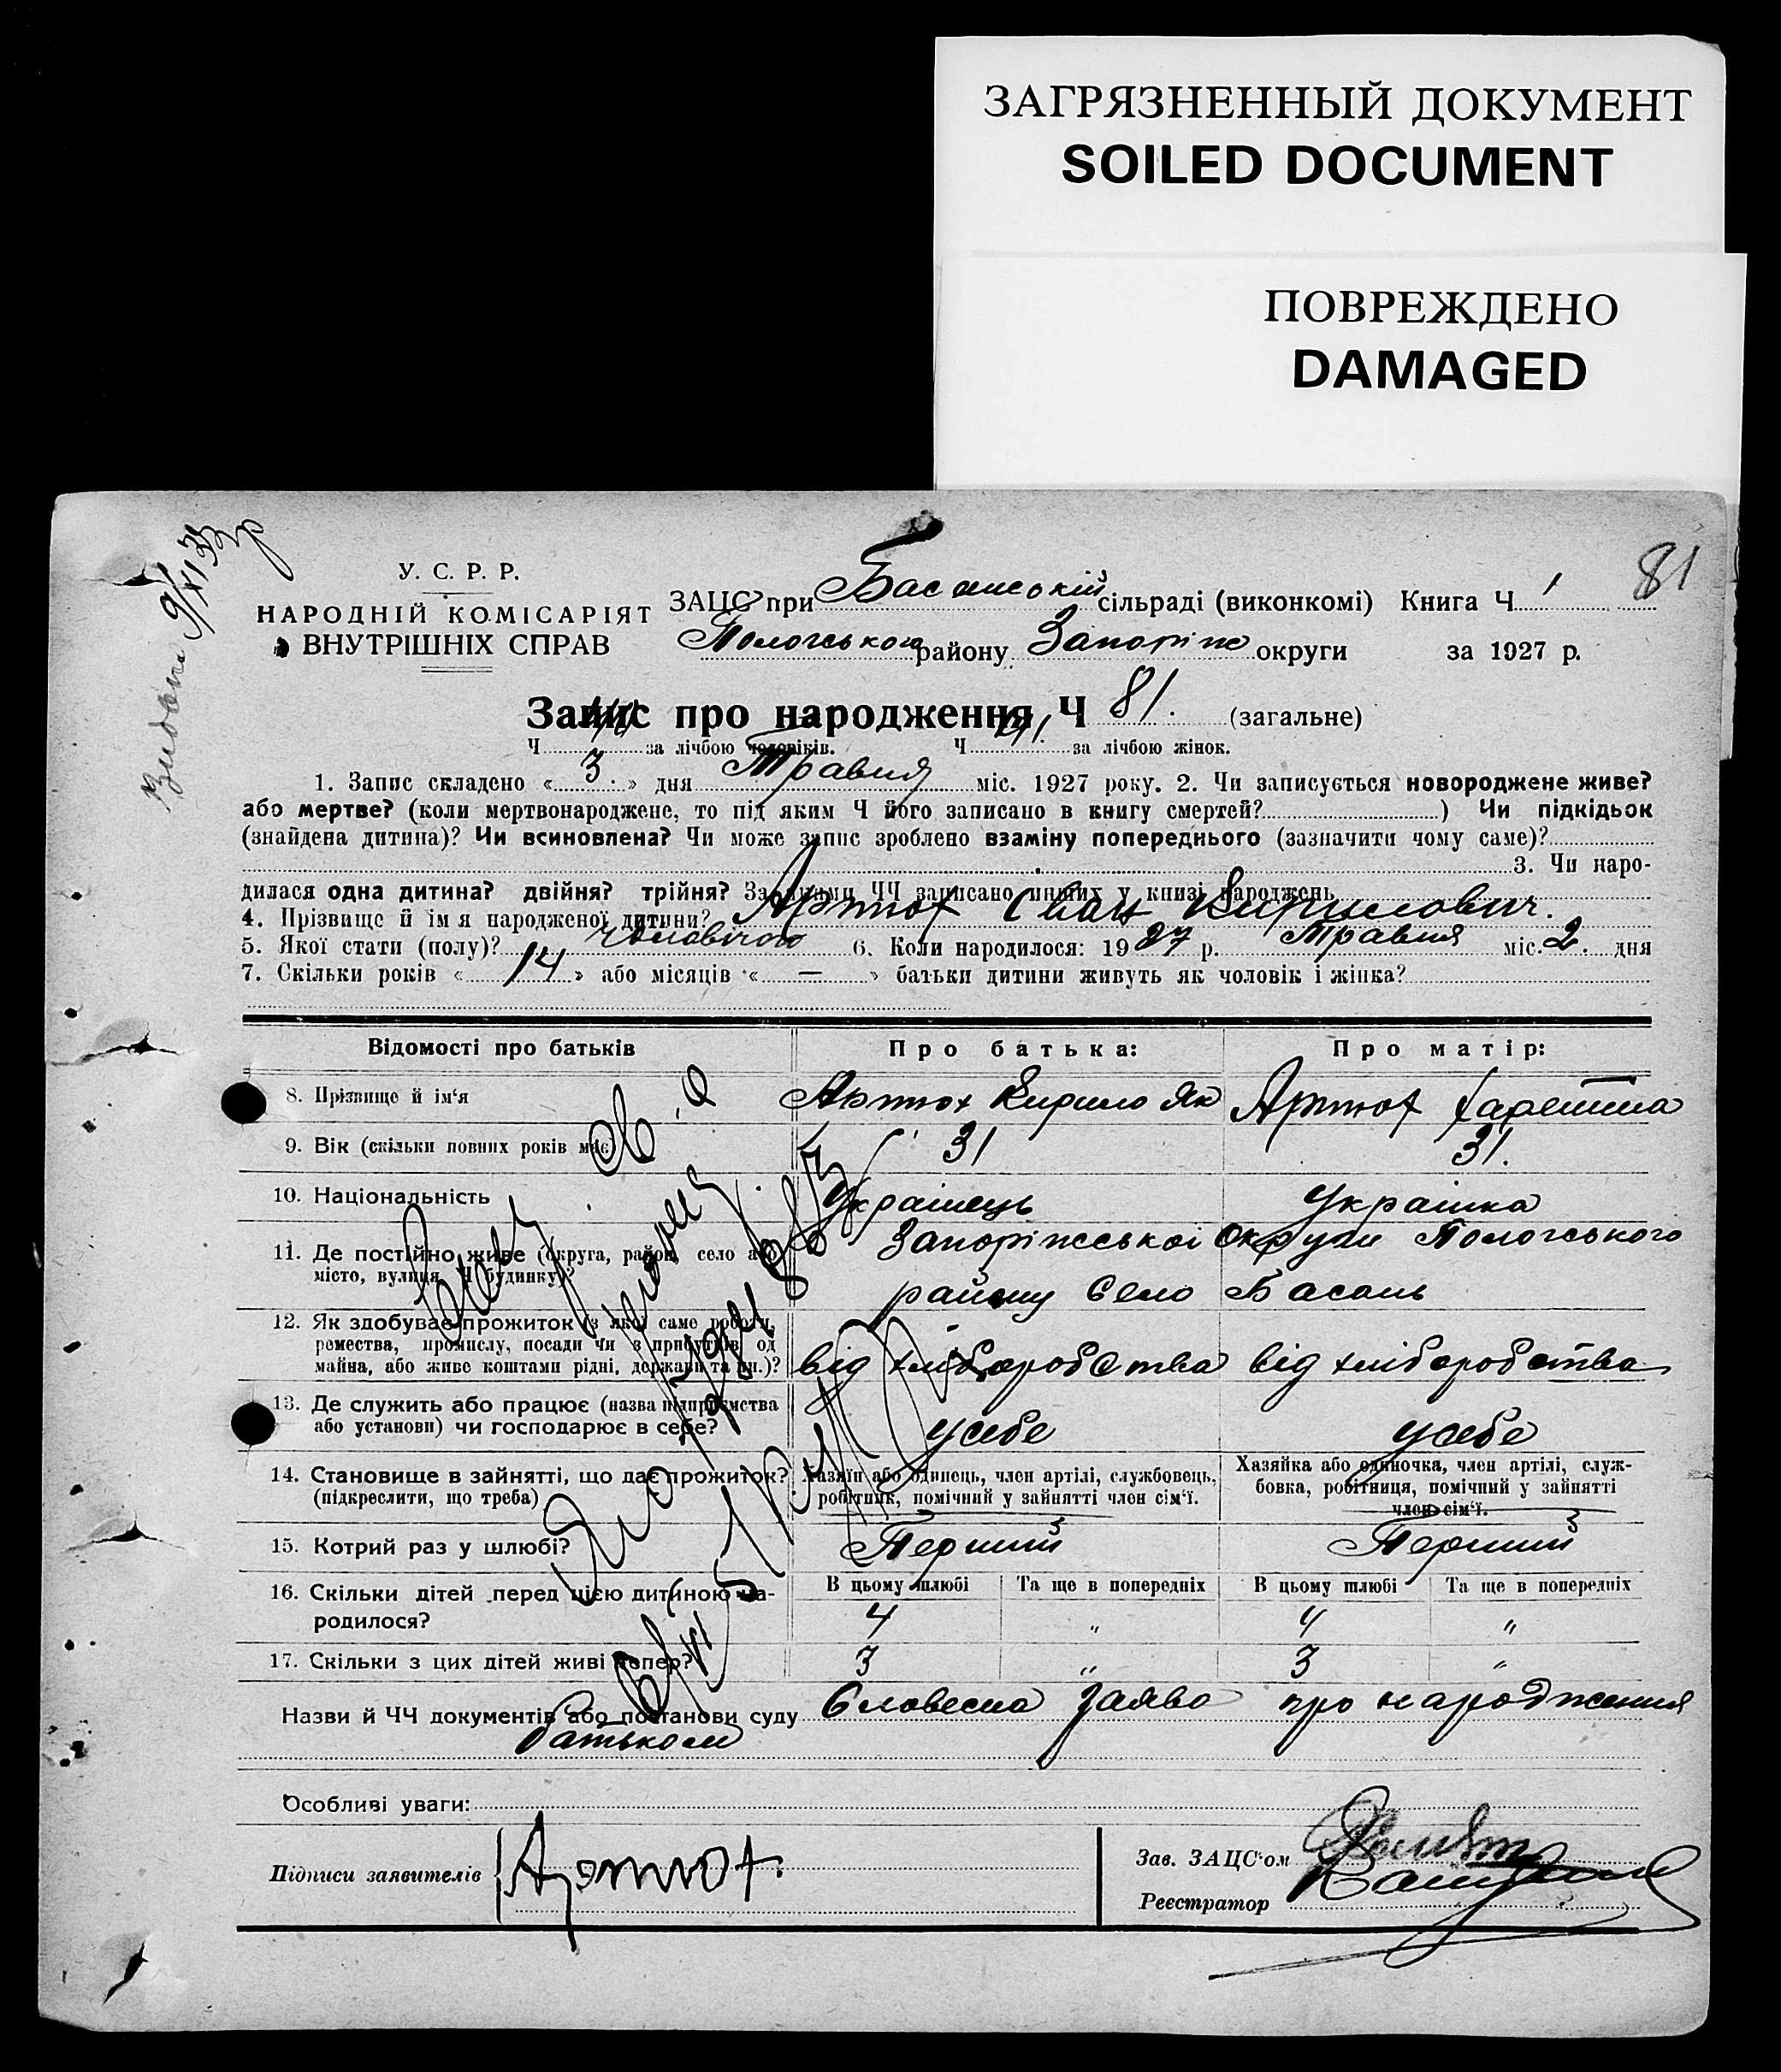 ЗАГРЯЗНЕННЫЙ ДОКУМЕНТ
SOILED DOCUMENT
ПОВРЕЖДЕНО
DAMAGED
81
У. С. Р. Р.
НАРОДНІЙ КОМІСАРІЯТ
ВНУТРІШНІХ СПРАВ
ЗАЦС при Басанській сільраді (виконкомі) Книга Ч 1
Пологського району Запоріж округи за 1927 р.
Запис про народження Ч 81. (загальне)
Ч за лічбою чоловіків. Ч за лічбою жінок.
1. Запис складено « 3 » дня Травня міс. 1927 року. 2. Чи записується новороджене живе?
або мертве? (коли мертвонароджене, то під яким Ч його записано в книгу смертей? ) Чи підкідьок
(знайдена дитина)? Чи всиновлена? Чи може запис зроблено взаміну попереднього (зазначити чому саме)?
3. Чи наро-
дилася одна дитина? двійня? трійня? За якими ЧЧ записано инших у книзі народжень
4. Прізвище й ім я народженої дитини? Артюх Іван Кирилович.
5. Якої стати (полу)? Чоловічого 6. Коли народилося: 1927 р. Травня міс. 2. дня
7. Скільки років « 14 » або місяців « — » батьки дитини живуть як чоловік і жінка?
Відомості про батьків Про батька: Про матір:
8. Прізвище й ім‘я Артюх Кирило Як Артюх Харетина
9. Вік (скільки повних років має) 31 31.
10. Національність Українець Українка
11. Де постійно живе (округа, район, село або Запоріжської Округи Пологського
місто, вулиця, Ч будинку)? району Село Басань
12. Як здобуває прожиток (з якої саме роботи,
ремества, промислу, посади чи з прибутків од
майна, або живе коштами рідні, держави та ин.)? від хліборобства від хліборобства
13. Де служить або працює (назва підприємства
або установи) чи господарює в себе? усебе усебе
14. Становище в зайнятті, що дає прожиток? Хазяїн або одинець, член артілі, службовець, Хазяйка або одиночка, член артілі, служ-
(підкреслити, що треба) робітник, помічний у зайнятті член сім‘ї. бовка, робітниця, помічний у зайнятті
член сім‘ї.
15. Котрий раз у шлюбі? Перший Перший
16. Скільки дітей перед цією дитиною на- В цьому шлюбі Та ще в попередніх В цьому шлюбі Та ще в попередніх
родилося? 4 " 4 "
17. Скільки з цих дітей живі тепер? 3 " 3 "
Назви й ЧЧ документів або постанови суду Словесна заява про народження
батьком
Особливі уваги:
Підписи заявителів Артюх.
Зав. ЗАЦС‘ом
Реєстратор